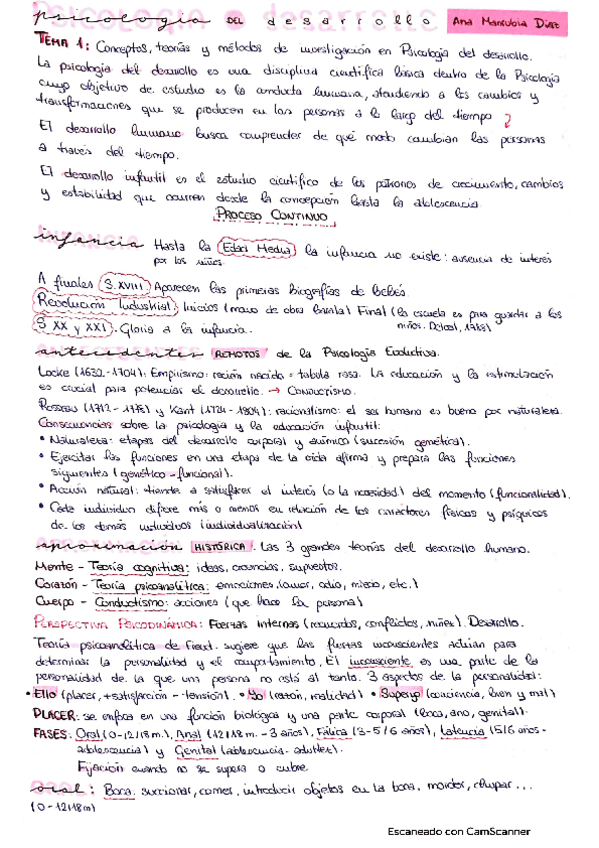 psicología DEL desarrollo
TEMA 1: Conceptos, teorías y métodos de investigación en Psicología del desarrollo.
La psicología del desarrollo es una disciplina científica básica dentro de la Psicología
cuyo objetivo de estudio es la conducta humana, atendiendo a los cambios y
transformaciones que se producen en las personas a lo largo del tiempo
El desarrollo humano busca comprender de qué modo cambian las personas
a través del tiempo.
El desarrollo infantil es el estudio científico de los patrones de crecimiento, cambios
y estabilidad que ocurren desde la concepción hasta la adolescencia.
PROCESO CONTINUO
infancia Hasta la Edad Media la infancia no existe: ausencia de interés
por los niños.
A finales S.XVIII Aparecen las primeras biografías de bebés.
Revolución Industrial: Inicios (mano de obra barata) Final (la escuela es para guardar a los
niños.
S XX y XXI. Gloria a la infancia.
antecedentes REMOTOS de la Psicología Evolutiva.
Locke (1632-1704): Empirismo: recién nacido = tabula rosa. La educación y la estimulación
es crucial para potenciar el desarrollo. → CONDUCTISMO.
(1712-1778) y Kant (1724-1804): racionalismo: el ser humano es bueno por naturaleza.
Consecuencias sobre la psicología y la educación infantil:
• Naturaleza: etapas del desarrollo corporal y anímico (sucesión genética).
• Ejercitar las funciones en una etapa de la vida afirma y prepara las funciones
siguientes (genético-funcional).
• Acción natural: tiende a satisfacer el interés (o la necesidad) del momento (funcionalidad).
• Cada individuo difiere más o menos en relación de los caracteres físicos y psíquicos
de los demás individuos (individualización)
aproximación HISTÓRICA. Las 3 grandes teorías del desarrollo humano.
Mente - Teoría cognitiva: ideas, creencias, supuestos.
Corazón - Teoría psicoanalítica: emociones (amor, odio, miedo, etc.)
Cuerpo - Conductismo: acciones (que hace la persona)
PERSPECTIVA PSICODINÁMICA: Fuerzas internas (recuerdos, conflictos, niñez). Desarrollo.
Teoría psicoanalítica de Freud. sugiere que las fuerzas inconscientes actúan para
determinar la personalidad y el comportamiento. El inconsciente es una parte de la
personalidad de la que una persona no está al tanto. 3 aspectos de la personalidad:
• Ello (placer, +satisfacción - tensión). • Yo (razón, realidad) • Superyó (conciencia, bien y mal)
PLACER: se enfoca en una función biológica y una parte corporal (boca, ano, genital).
FASES: Oral (0-12/18 m.), Anal (12/18 m. - 3 años), Fálica (3-5/6 años), Latencia (5/6 años-
adolescencia) y Genital (adolescencia-adultez).
Fijación cuando no se supera o cubre.
oral: Boca. succionar, comer, introducir objetos en la boca, morder, chupar...
(0-12/18m)
Escaneado con CamScanner